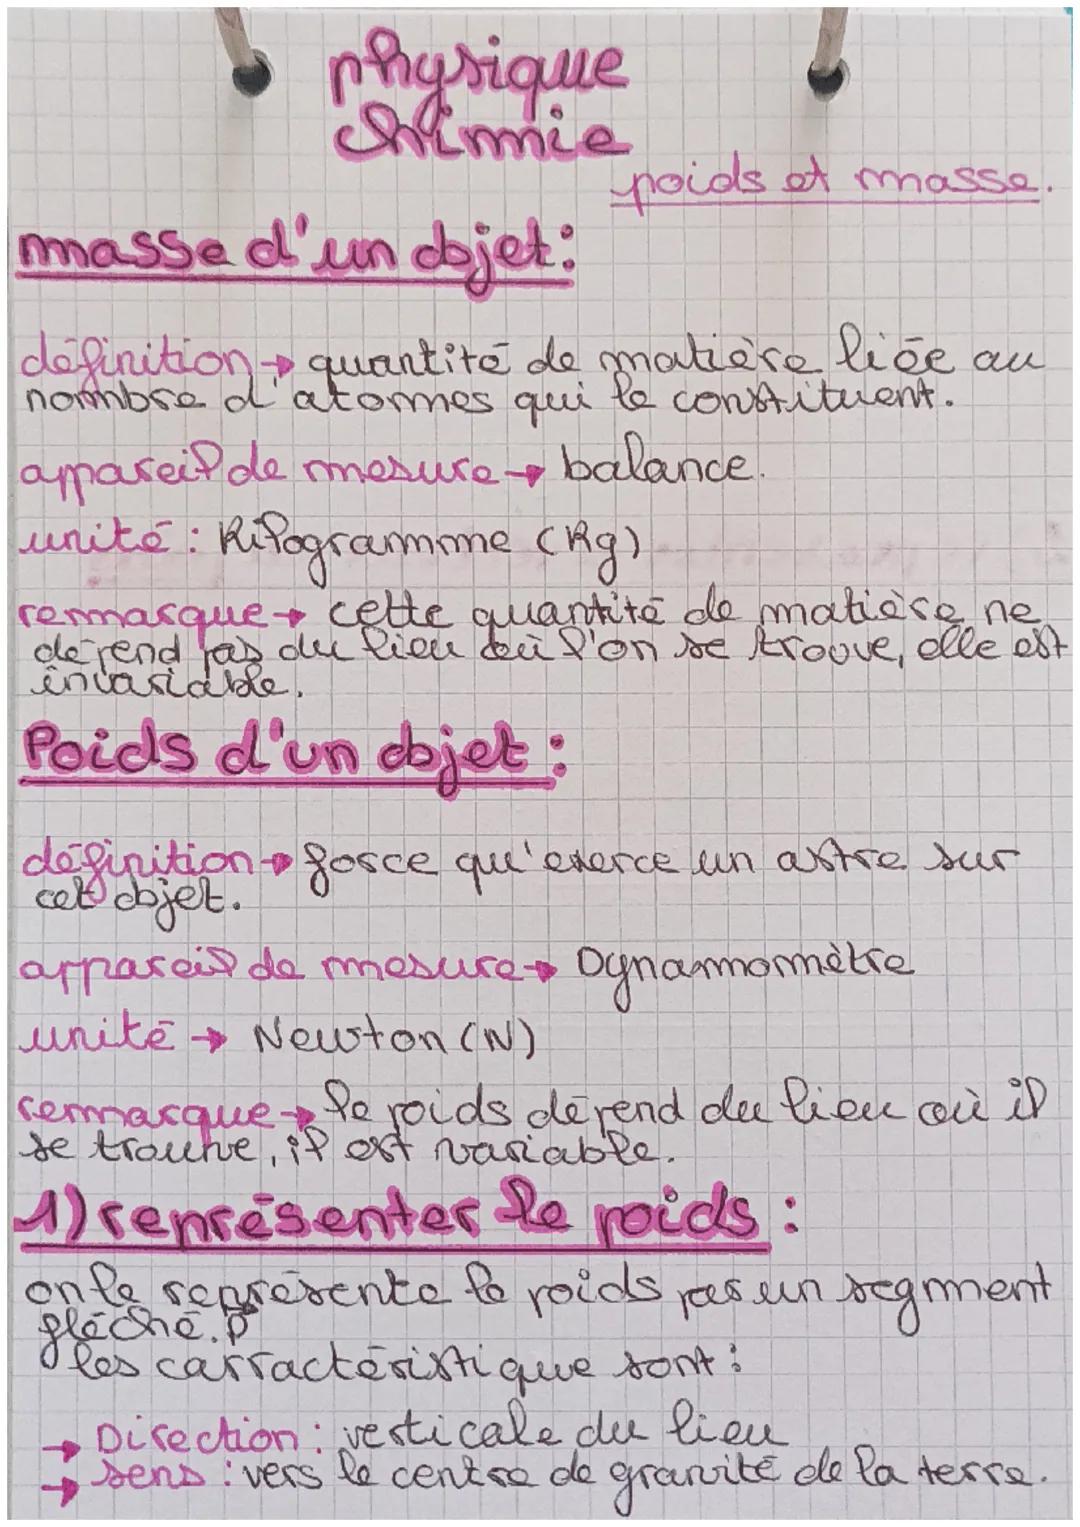 physique
chimie
poids et masse.
masse d'un objet:
définition → quantité de matière liée au
nombre d'atomes qui le constituent.
appareil de mesure → balance.
unité : Kilogramme (Kg)
remarque → cette quantité de matière ne
dépend pas du lieu où l'on se trouve, elle est
invariable.
Poids d'un objet :
définition → force qu'exerce un astre sur
cet objet.
appareil de mesure → Dynamomètre
unité → Newton (N)
remarque → le poids dépend du lieu où il
se trouve, il est variable.
1) représenter le poids :
on le représente le poids par un segment
fléché. P
les carractéristique sont :
→ Direction : verticale du lieu
→ sens : vers le centre de gravité de la terre.